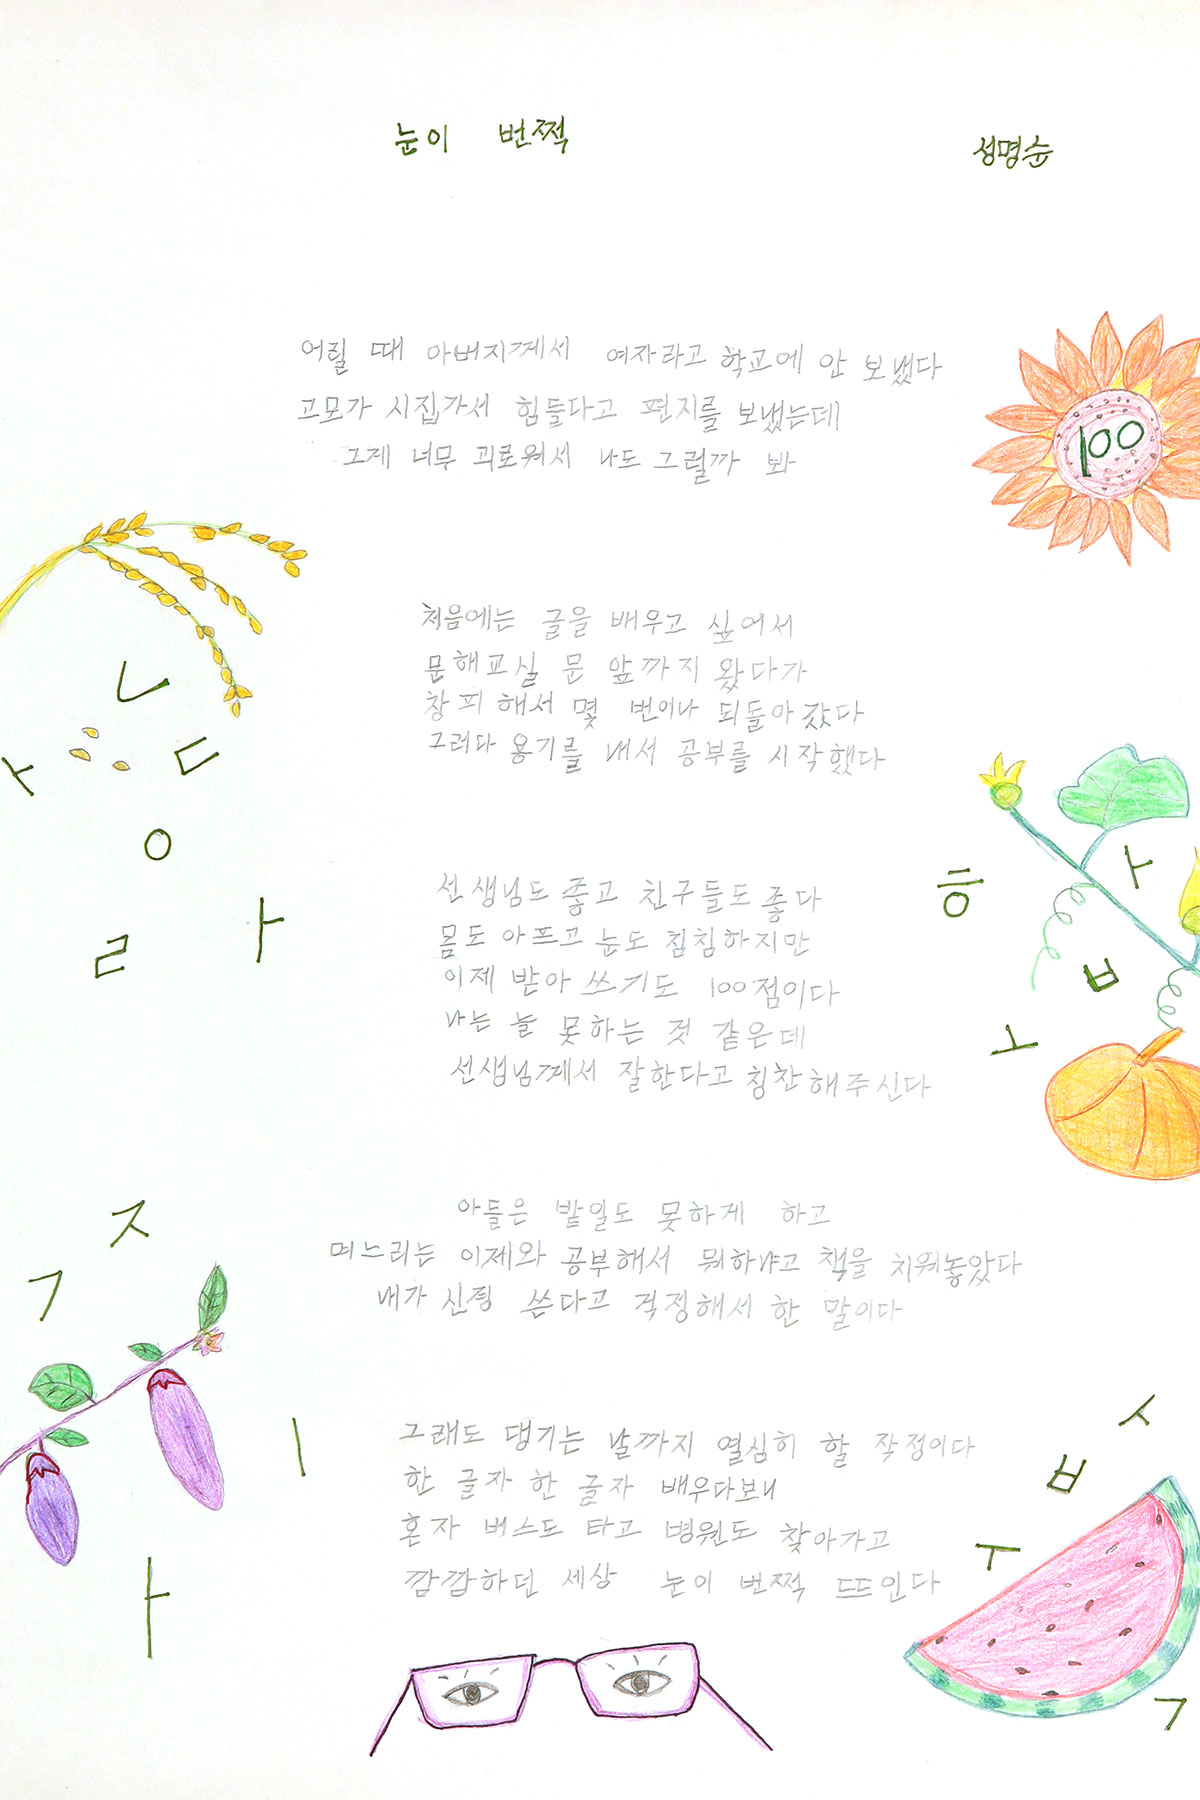 눈이 번쩍
성명순
어릴 때 아버지께서 여자라고 학교에 안 보냈다
고모가 시집가서 힘들다고 편지를 보냈는데
그게 너무 괴로워서 나도 그럴까 봐
100
처음에는 글을 배우고 싶어서
문해교실 문 앞까지 왔다가
창피해서 몇 번이나 되돌아갔다
그러다 용기를 내서 공부를 시작했다
선생님도 좋고 친구들도 좋다
몸도 아프고 눈도 침침하지만
이제 받아쓰기도 100점이다
나는 늘 못하는 것 같은데
선생님께서 잘한다고 칭찬해주신다
아들은 밭일도 못하게 하고
며느리는 이제와 공부해서 뭐하냐고 책을 치워놓았다
내가 신경 쓴다고 걱정해서 한 말이다
그래도 댕기는 날까지 열심히 할 작정이다
한 글자 한 글자 배우다보니
혼자 버스도 타고 병원도 찾아가고
깜깜하던 세상 눈이 번쩍 뜨인다
ㄴ
ㅏ
ㄷ
ㅇ
ㅏ
ㄹ
ㅎ
ㅏ
ㅂ
ㅗ
ㅈ
ㄱ
ㅣ
ㅏ
ㅅ
ㅂ
ㅜ
ㄱ